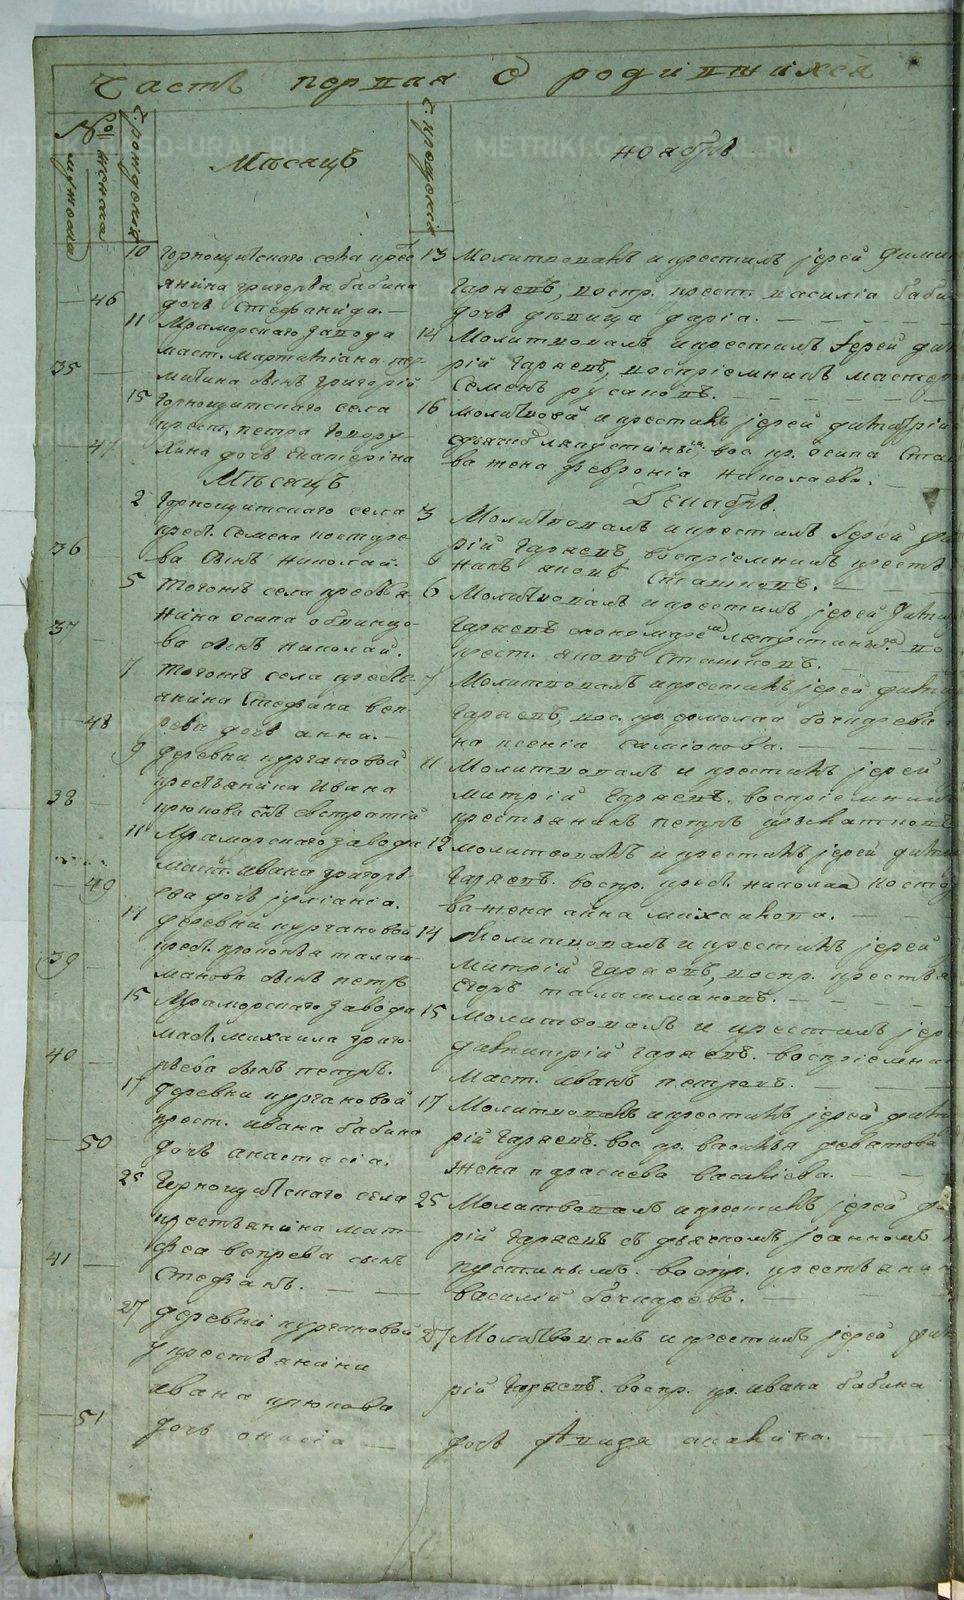 METRIKI.GASO-URAL.RU
Часть первая о родившихся
№
мужска
женска
Ч. рождения
Мѣсяцъ
Ч. крещения
ноябрь
10 Горнощитскаго села крес
янина григорья бабина
46 дочь Стефанида.
13 Молитвовалъ и крестилъ іерей дими
Гаряевъ, воспр. крест. василіа баби
дочь дѣвица даріа.
11 Мраморскаго завода
маст. Мартиніана
35 сынъ Григорій
14 Молитвовалъ и крестилъ іерей дим
рій Гаряевъ, воспріемникъ мастер
Семенъ русановъ.
15 Горнощитскаго села
крест. петра
47 дочь Екатеріна
16 молитвовалъ и крестилъ іерей димитрій
вос. кр. осипа Ста
ва жена февронія николаева.
Мѣсяцъ
Декабрь.
2 Горнощитскаго села
крест. Семена костаре
36 ва сынъ николай.
3 Молитвовалъ и крестилъ іерей ди
рій Гаряевъ воспріемникъ крестья
нинъ яковъ Сташковъ.
5 Тогожъ села крестья
нина осипа обвинцо
37 ва сынъ николай.
6 Молитвовалъ и крестилъ іерей Дими
Гаряевъ
крест. яковъ Сташковъ.
7 Тогожъ села кресть
янина Стефана веп
48 рева дочь анна.
7 Молитвовалъ и крестилъ іерей дими
Гаряевъ, вос. кр. ермолаа бочкарева
на ксенія симіонова.
9 деревни кургановой
крестьянина Ивана
38 крюкова сынъ евстратій
11 Молитвовалъ и крестилъ іерей
митрій Гаряевъ. воспріемник
крестьянинъ петръ
11 Мраморскаго завода
маст. ивана григорь
49 ева дочь іуліанія.
12 молитвовалъ и крестилъ іерей дими
Гаряевъ. воспр. крест. николая косто
ва жена анна михаилова.
14 деревни кургановой
крест. прокопья талаш
39 манова сынъ петръ
14 Молитвовалъ и крестилъ іерей
митрій Гаряевъ, воспр. крестья
егоръ талашмановъ.
15 Мраморскаго завода
маст. михаила григо
40 рьева сынъ петръ.
15 Молитвовалъ и крестилъ іер
димитрій Гаряевъ. воспріемни
маст. иванъ петровъ.
17 Деревни кургановой
крест. ивана бабина
50 дочь анастасіа.
17 Молитвовалъ и крестилъ іерей дими
рій Гаряевъ. вос. кр. василья девятова
жена параскева василіева.
25 Горнощитскаго села
крестьянина мат
фея вепрева сынъ
41 Стефанъ.
25 Молитвовалъ и крестилъ іерей ди
рій Гаряевъ съ дьякономъ іоанномъ
пустинымъ. воспр. крестьянин
василій бочкаревъ.
27 деревни кургановой
у крестьянина
ивана крюкова
51 дочь
27 Молитвовалъ и крестилъ іерей дим
рій Гаряевъ. воспр. кр. ивана бабина
дочь